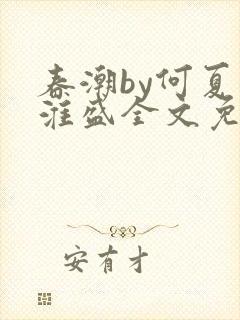 春潮by何夏
淮盛全文免
安有才